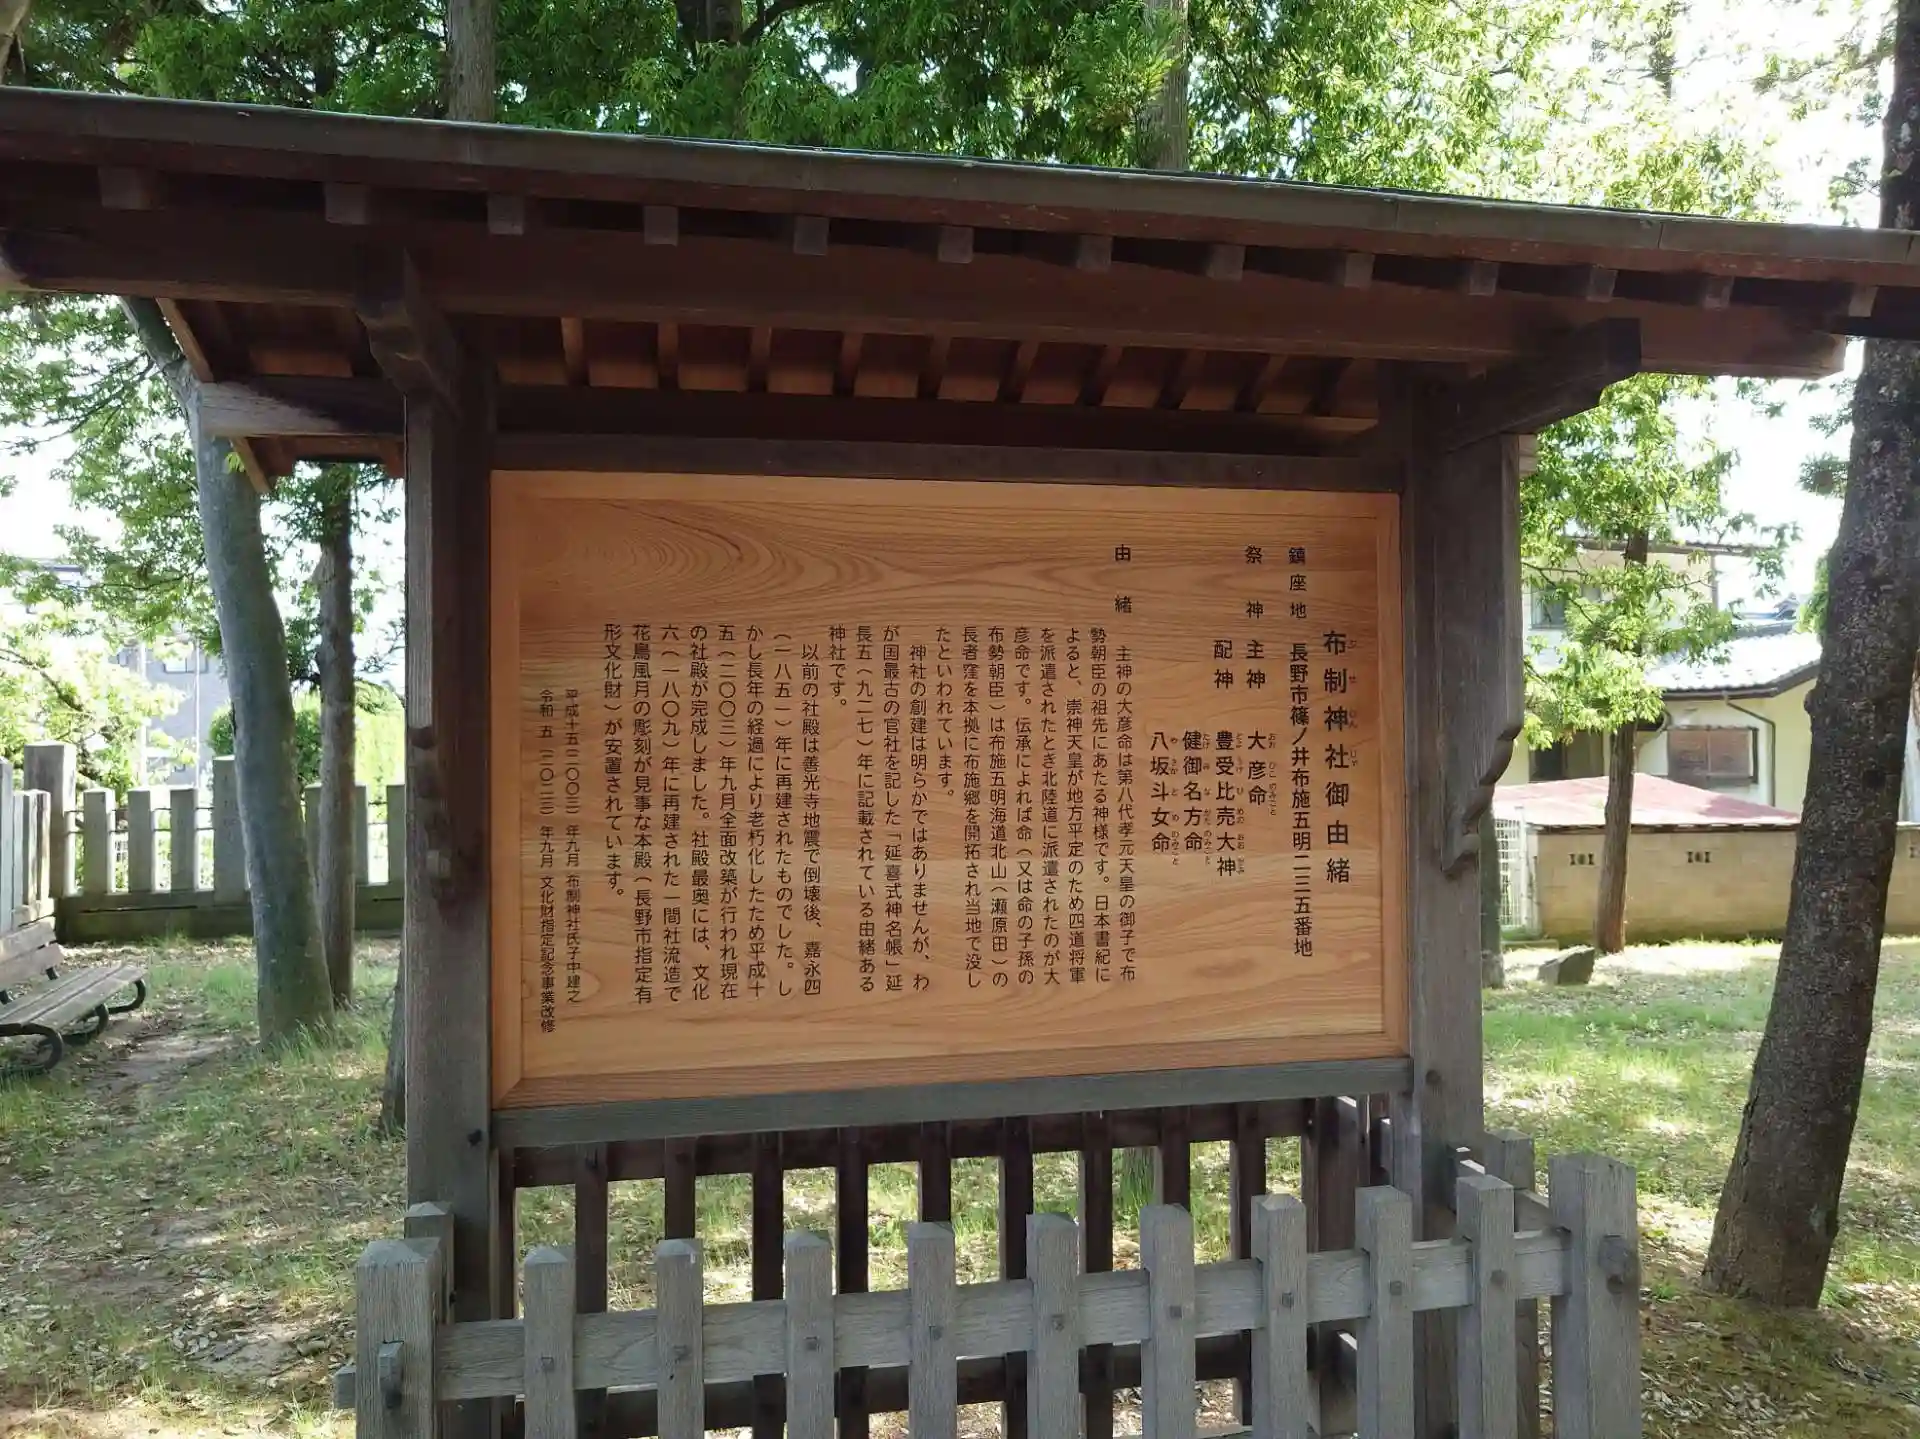 布制神社御由緒
鎮座地 長野市篠ノ井布施五明二三五番地
祭神 主神 大彦命
配神 豊受比売大神
健御名方命
八坂斗女命
由緒
主神の大彦命は第八代孝元天皇の御子で布
勢朝臣の祖先にあたる神様です。日本書紀に
よると、崇神天皇が地方平定のため四道将軍
を派遣されたとき北陸道に派遣されたのが大
彦命です。伝承によれば命(又は命の子孫の
布勢朝臣)は布施五明海道北山(瀬原田)の
長者窪を本拠に布施郷を開拓され当地で没し
たといわれています。
神社の創建は明らかではありませんが、わ
が国最古の官社を記した「延喜式神名帳」延
長五(九二七)年に記載されている由緒ある
神社です。
以前の社殿は善光寺地震で倒壊後、嘉永四
(一八五一)年に再建されたものでした。し
かし長年の経過により老朽化したため平成十
五(二〇〇三)年九月全面改築が行われ現在
の社殿が完成しました。社殿最奥には、文化
六(一八〇九)年に再建された一間社流造で
花鳥風月の彫刻が見事な本殿(長野市指定有
形文化財)が安置されています。
平成十五(二〇〇三)年九月 布制神社氏子中建之
令和 五(二〇二三)年九月 文化財指定記念事業改修